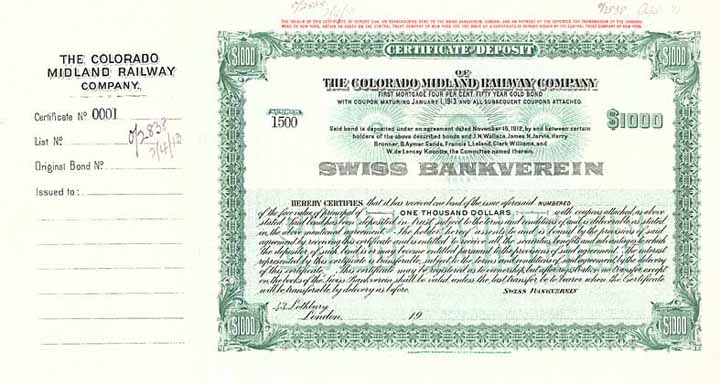 THE COLORADO
MIDLAND RAILWAY
COMPANY.
Certificate Nº 0001
List Nº
Original Bond Nº
Issued to:
$1000
$1000
CERTIFICATE OF DEPOSIT
OF
THE COLORADO MIDLAND RAILWAY COMPANY
FIRST MORTGAGE FOUR PER CENT. FIFTY YEAR GOLD BOND
WITH COUPON MATURING JANUARY 1, 1913 AND ALL SUBSEQUENT COUPONS ATTACHED.
NUMBER
1500
$1000
Said bond is deposited under an agreement dated November 15, 1912, by and between certain
holders of the above described bonds and J.N. Wallace, James N. Jarvie, Harry
Bronner, B. Aymar Sands, Francis L. Leland, Clark Williams, and
W. de Lancey Kountze, the Committee named therein.
SWISS BANKVEREIN
HEREBY CERTIFIES that it has received one bond of the issue aforesaid NUMBERED
of the face value of principal of ONE THOUSAND DOLLARS with coupons attached, as above
stated. Said bond has been deposited in trust, subject to the terms and conditions of, and is deliverable, as stated
in, the above mentioned agreement. The holder hereof assents to and is bound by the provisions of said
agreement by receiving this certificate and is entitled to receive all the securities, benefits and advantages to which
the depositor of such bond is or may become entitled pursuant to the provisions of said agreement. The interest
represented by this certificate is transferable, subject to the terms and conditions of said agreement, by the delivery
of this certificate. This certificate may be registered as to ownership, but after registration no transfer except
on the books of the Swiss Bankverein shall be valid, unless the last transfer be to bearer, when the Certificate
will be transferable by delivery as before.
SWISS BANKVEREIN
43, Lothbury
London, 19
$1000
$1000